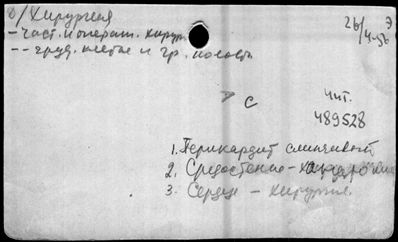 б/Хирургия
- част. и операт. хирур.
-- груд. клетка и гр. полость
26/4-56 Э
С
Чит.
489528
1. Перикардит слипчивый
2. Средостение -
3. Сердце - хирургия.